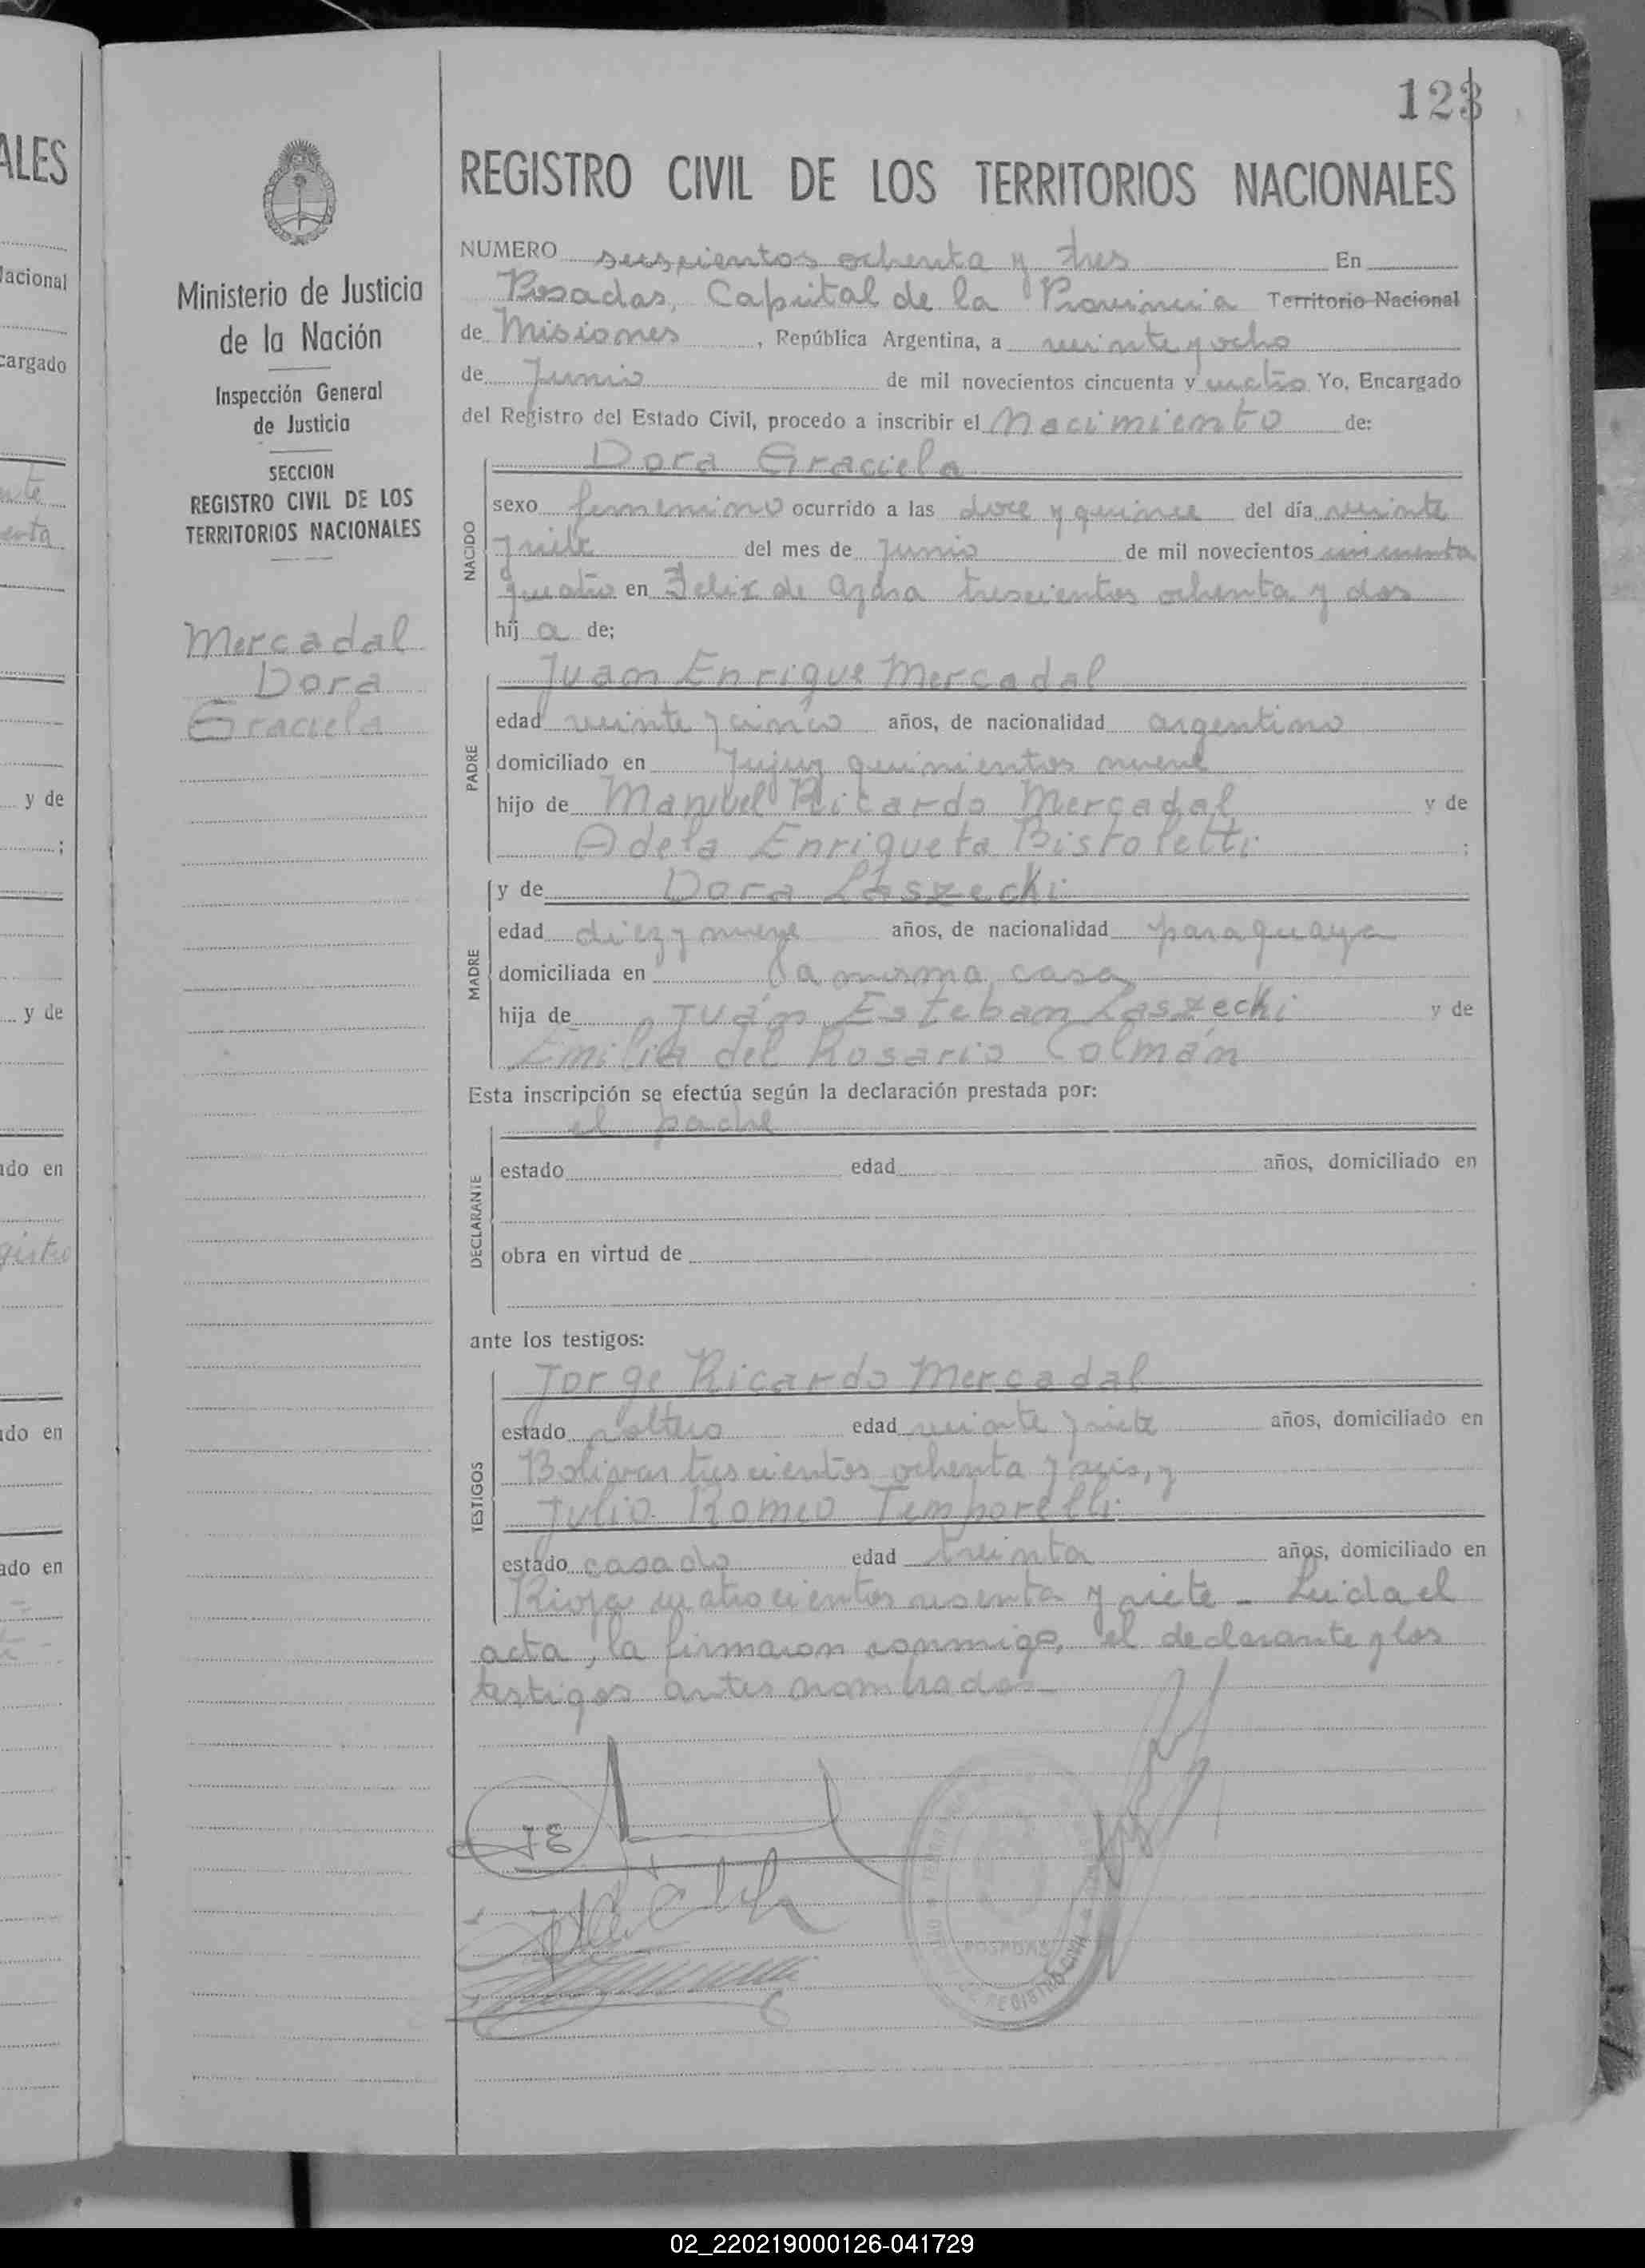 123
REGISTRO CIVIL DE LOS TERRITORIOS NACIONALES
Ministerio de Justicia
de la Nación
Inspección General
de Justicia
SECCION
REGISTRO CIVIL DE LOS
TERRITORIOS NACIONALES
Mercadal
Dora
Graciela
NUMERO seiscientos ochenta y tres En
Posadas, Capital de la Provincia Territorio Nacional
de Misiones, República Argentina, a veinte y ocho
de Junio de mil novecientos cincuenta y cuatro Yo, Encargado
del Registro del Estado Civil, procedo a inscribir el Nacimiento de:
NACIDO
Dora Graciela
sexo femenino ocurrido a las doce y quince del día veinte
y siete del mes de Junio de mil novecientos cincuenta
y cuatro en Felix de Azara trescientos ochenta y dos
hij a de;
PADRE
Juan Enrique Mercadal
edad veinte y cinco años, de nacionalidad argentino
domiciliado en Jujuy quinientos nueve
hijo de Manuel Ricardo Mercadal y de
Adela Enriqueta Bistoletti ;
MADRE
y de Dora Laszecki
edad diez y nueve años, de nacionalidad paraguaya
domiciliada en la misma casa
hija de Juán Esteban Laszecki y de
Emilia del Rosario Colmán
Esta inscripción se efectúa según la declaración prestada por:
el padre
DECLARANTE
estado edad años, domiciliado en
obra en virtud de
ante los testigos:
TESTIGOS
Jorge Ricardo Mercadal
estado soltero edad veinte y siete años, domiciliado en
Bolivar trescientos ochenta y seis, y
Julio Romeo Temporelli
estado casado edad treinta años, domiciliado en
Rioja cuatrocientos sesenta y siete - Leida el
acta, la firmaron conmigo, el declarante y los
testigos antes nombrados—
JE
POSADAS
REGISTRO CIVIL
ALES
Nacional
cargado
y de
;
y de
do en
do en
ado en
02_220219000126-041729